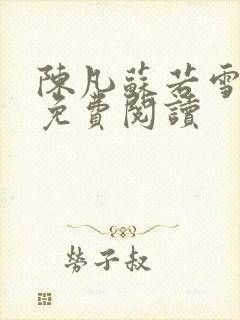 陳凡蘇若雪
免費閱讀
勞子叔